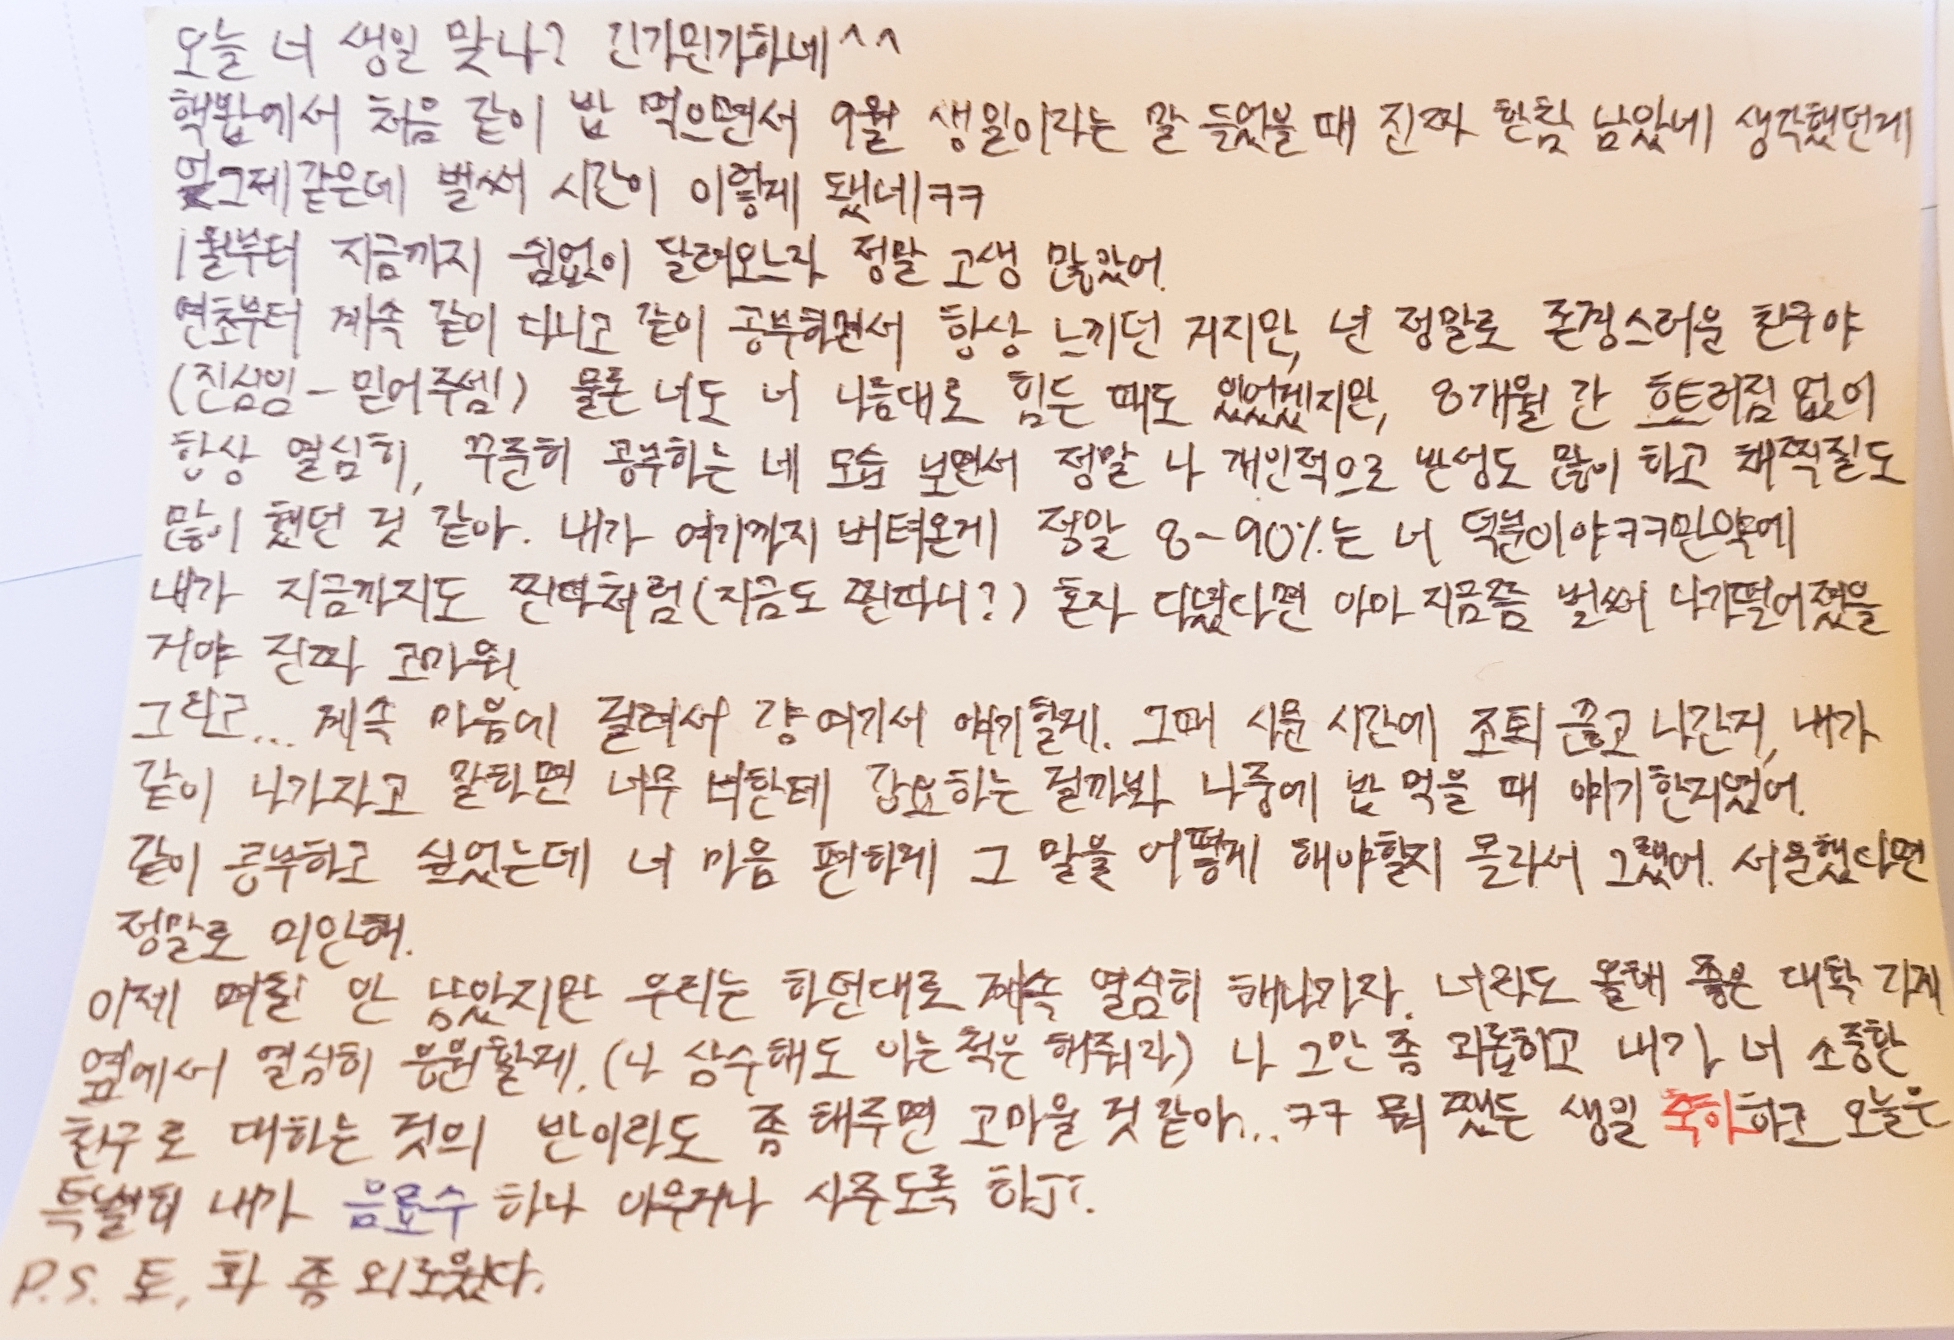 오늘 너 생일 맞나? 긴가민가하네^^
핵밥에서 처음 같이 밥 먹으면서 9월 생일이라는 말 들었을 때 진짜 한참 남았네 생각했던게
엊그제같은데 벌써 시간이 이렇게 됐네ㅋㅋ
1월부터 지금까지 쉼없이 달려오느라 정말 고생 많았어.
연초부터 계속 같이 다니고 같이 공부하면서 항상 느끼던 거지만, 넌 정말로 존경스러운 친구야
(진심임-믿어주셈!) 물론 너도 너 나름대로 힘든 때도 있었겠지만, 8개월 간 흐트러짐 없이
항상 열심히, 꾸준히 공부하는 네 모습 보면서 정말 나 개인적으로 반성도 많이 하고 채찍질도
많이 했던 것 같아. 내가 여기까지 버텨온게 정말 8~90%는 너 덕분이야ㅋㅋ만약에
내가 지금까지도 찐따처럼(지금도 찐따니?) 혼자 다녔다면 아마 지금쯤 벌써 나가떨어졌을
거야 진짜 고마워.
그리고... 계속 마음에 걸려서 걍 여기서 얘기할게. 그때 사문 시간에 조퇴 끊고 나간거, 내가
같이 나가자고 말하면 너무 너한테 강요하는 걸까봐 나중에 밥 먹을 때 얘기한거였어.
같이 공부하고 싶었는데 너 마음 편하게 그 말을 어떻게 해야할지 몰라서 그랬어. 서운했다면
정말로 미안해.
이제 며칠 안 남았지만 우리는 하던대로 계속 열심히 해나가자. 너라도 올해 좋은 대학 가게
옆에서 열심히 응원할게.(나 삼수해도 아는척은 해줘라) 나 그만 좀 괴롭히고 내가 너 소중한
친구로 대하는 것의 반이라도 좀 해주면 고마울 것 같아... ㅋㅋ 뭐 쨌든 생일 축하하고 오늘은
특별히 내가 음료수 하나 아무거나 사주도록 하지.
P.S. 토, 화 좀 외로웠다.